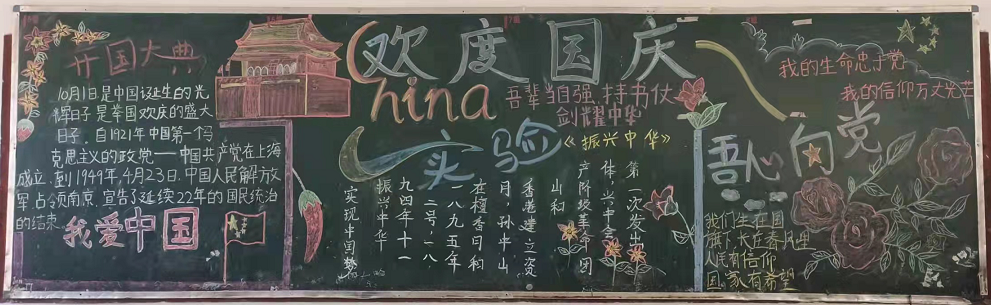 开国大典
10月1日是中国诞生的光
辉日子是举国欢庆的盛大
日子。自1921年中国第一个马
克思主义的政党——中国共产党在上海
成立.到1949年.4月23日.中国人民解放
军占领南京.宣告了延续22年的国民统治
的结束
我爱中国
欢度国庆
China
吾辈当自强.持书仗
剑耀中华
实验
《振兴中华》
第一次发出
体,兴中会
产阶级革命团
山和
香港建立资
月,孙中山
在檀香山和
一八九五年
二号,一八
九四年十一
振兴中华
实现中国梦
我的生命忠于党
我的信仰万丈光芒
吾心向党
我们生在国
旗下.长在春风里
人民有信仰
国家有希望